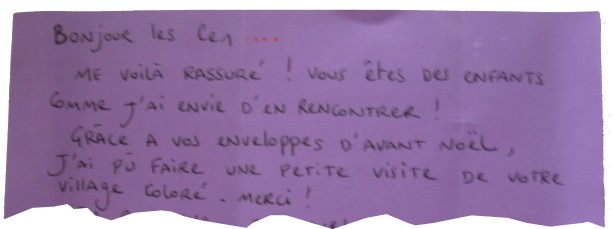 Bonjour les Ce1 ...
Me voilà rassuré ! Vous êtes des enfants
comme j'ai envie d'en rencontrer !
Grâce a vos enveloppes d'avant Noël,
j'ai pû faire une petite visite de votre
village coloré. Merci !